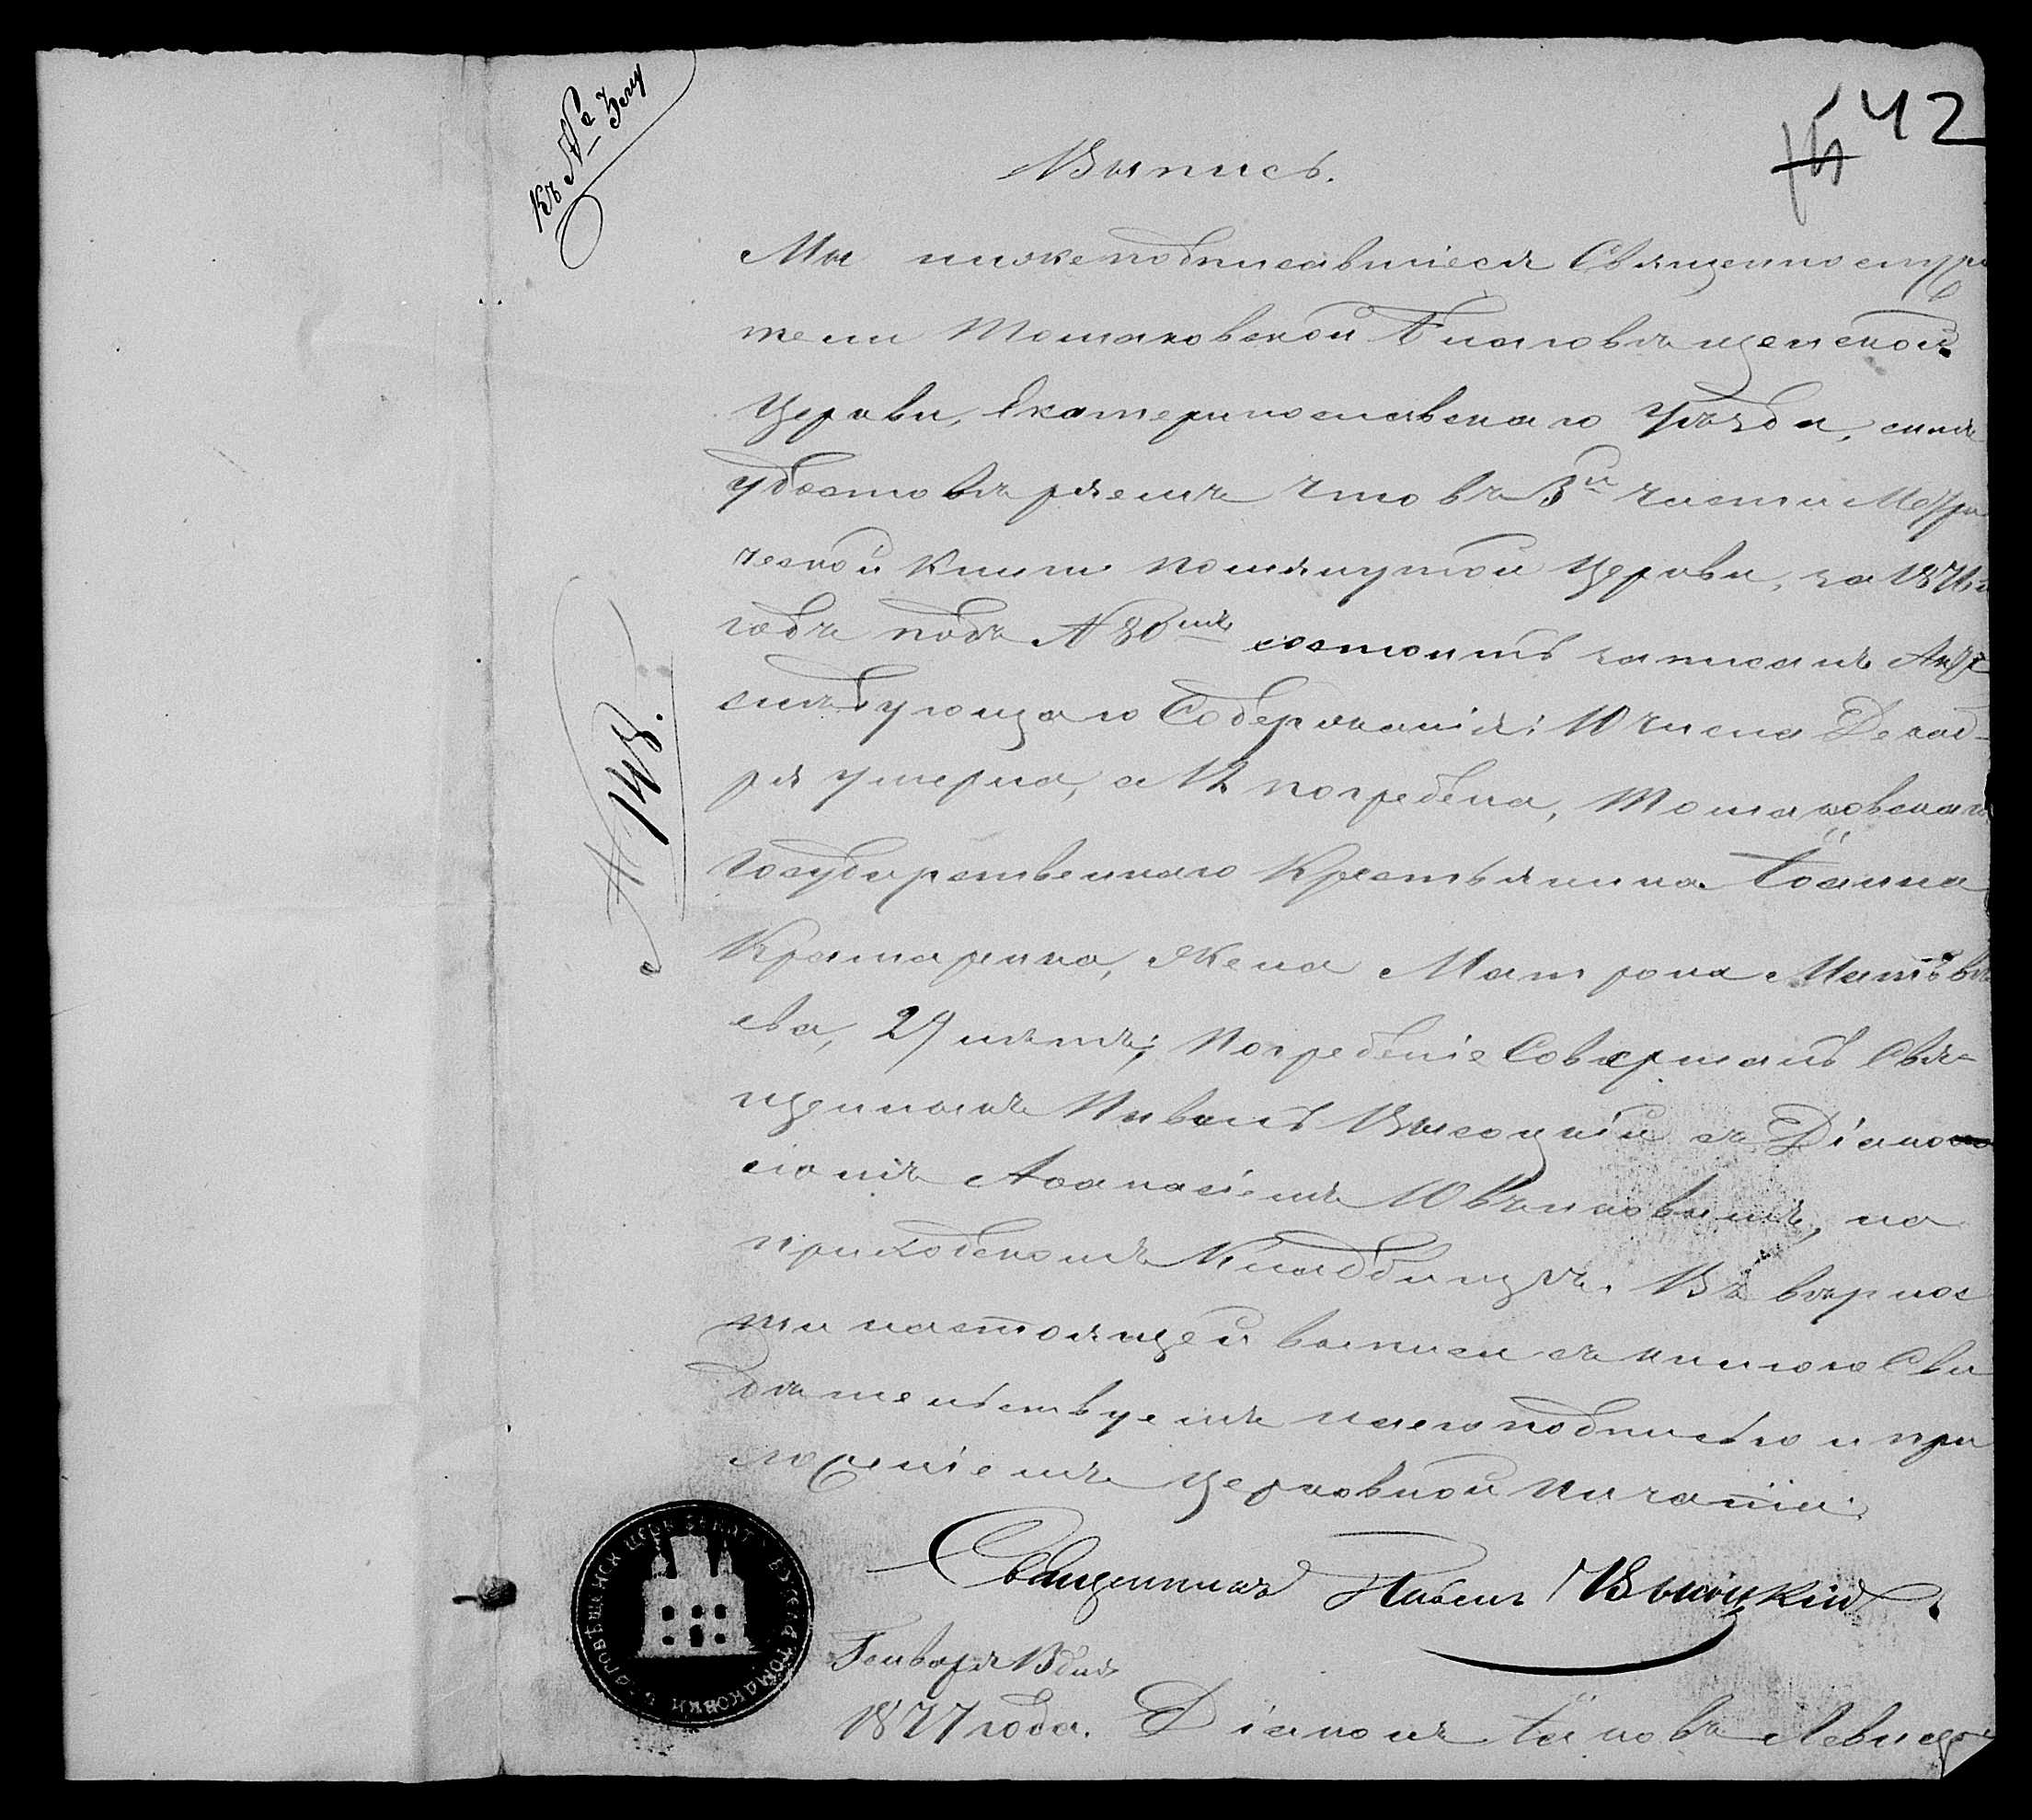 42
Къ № 3ему
Выпись.
Мы нижеподписавшіеся Священнослужи
тели Томаковской Благовѣщенской
Церкви, Екатеринославскаго Уѣзда, симъ
удостовѣряемъ что въ 3й части Метри
ческой книги помянутой Церкви, за 1876й
годъ подъ № 80мъ состоитъ записанъ Актъ
слѣдующаго Содержанія: 10 числа Декаб-
ря умерла, а 12 погребена, Томаковскаго
Государственнаго Крестьянина Іоанна
жена Матрона Матвѣ
ева, 29 лѣтъ; Погребеніе Совершалъ Свя-
щенникъ Павелъ Высоцкій съ Діако
номъ Аѳанасіемъ на
приходскомъ Кладбищѣ. Въ вѣрнос
ти настоящей выписи съ книгою Сви
дѣтельствуемъ нашею подписью и при
ложеніемъ Церковной Печати.
Священникъ Павелъ Высоцкій
Генваря 13 дня
1877 года. Діаконъ Іаковъ
№ 148.
БЛАГОВѢЩЕНСК ЦЕРК ЕКАТ УѢЗДА ТОМАКОВКИ